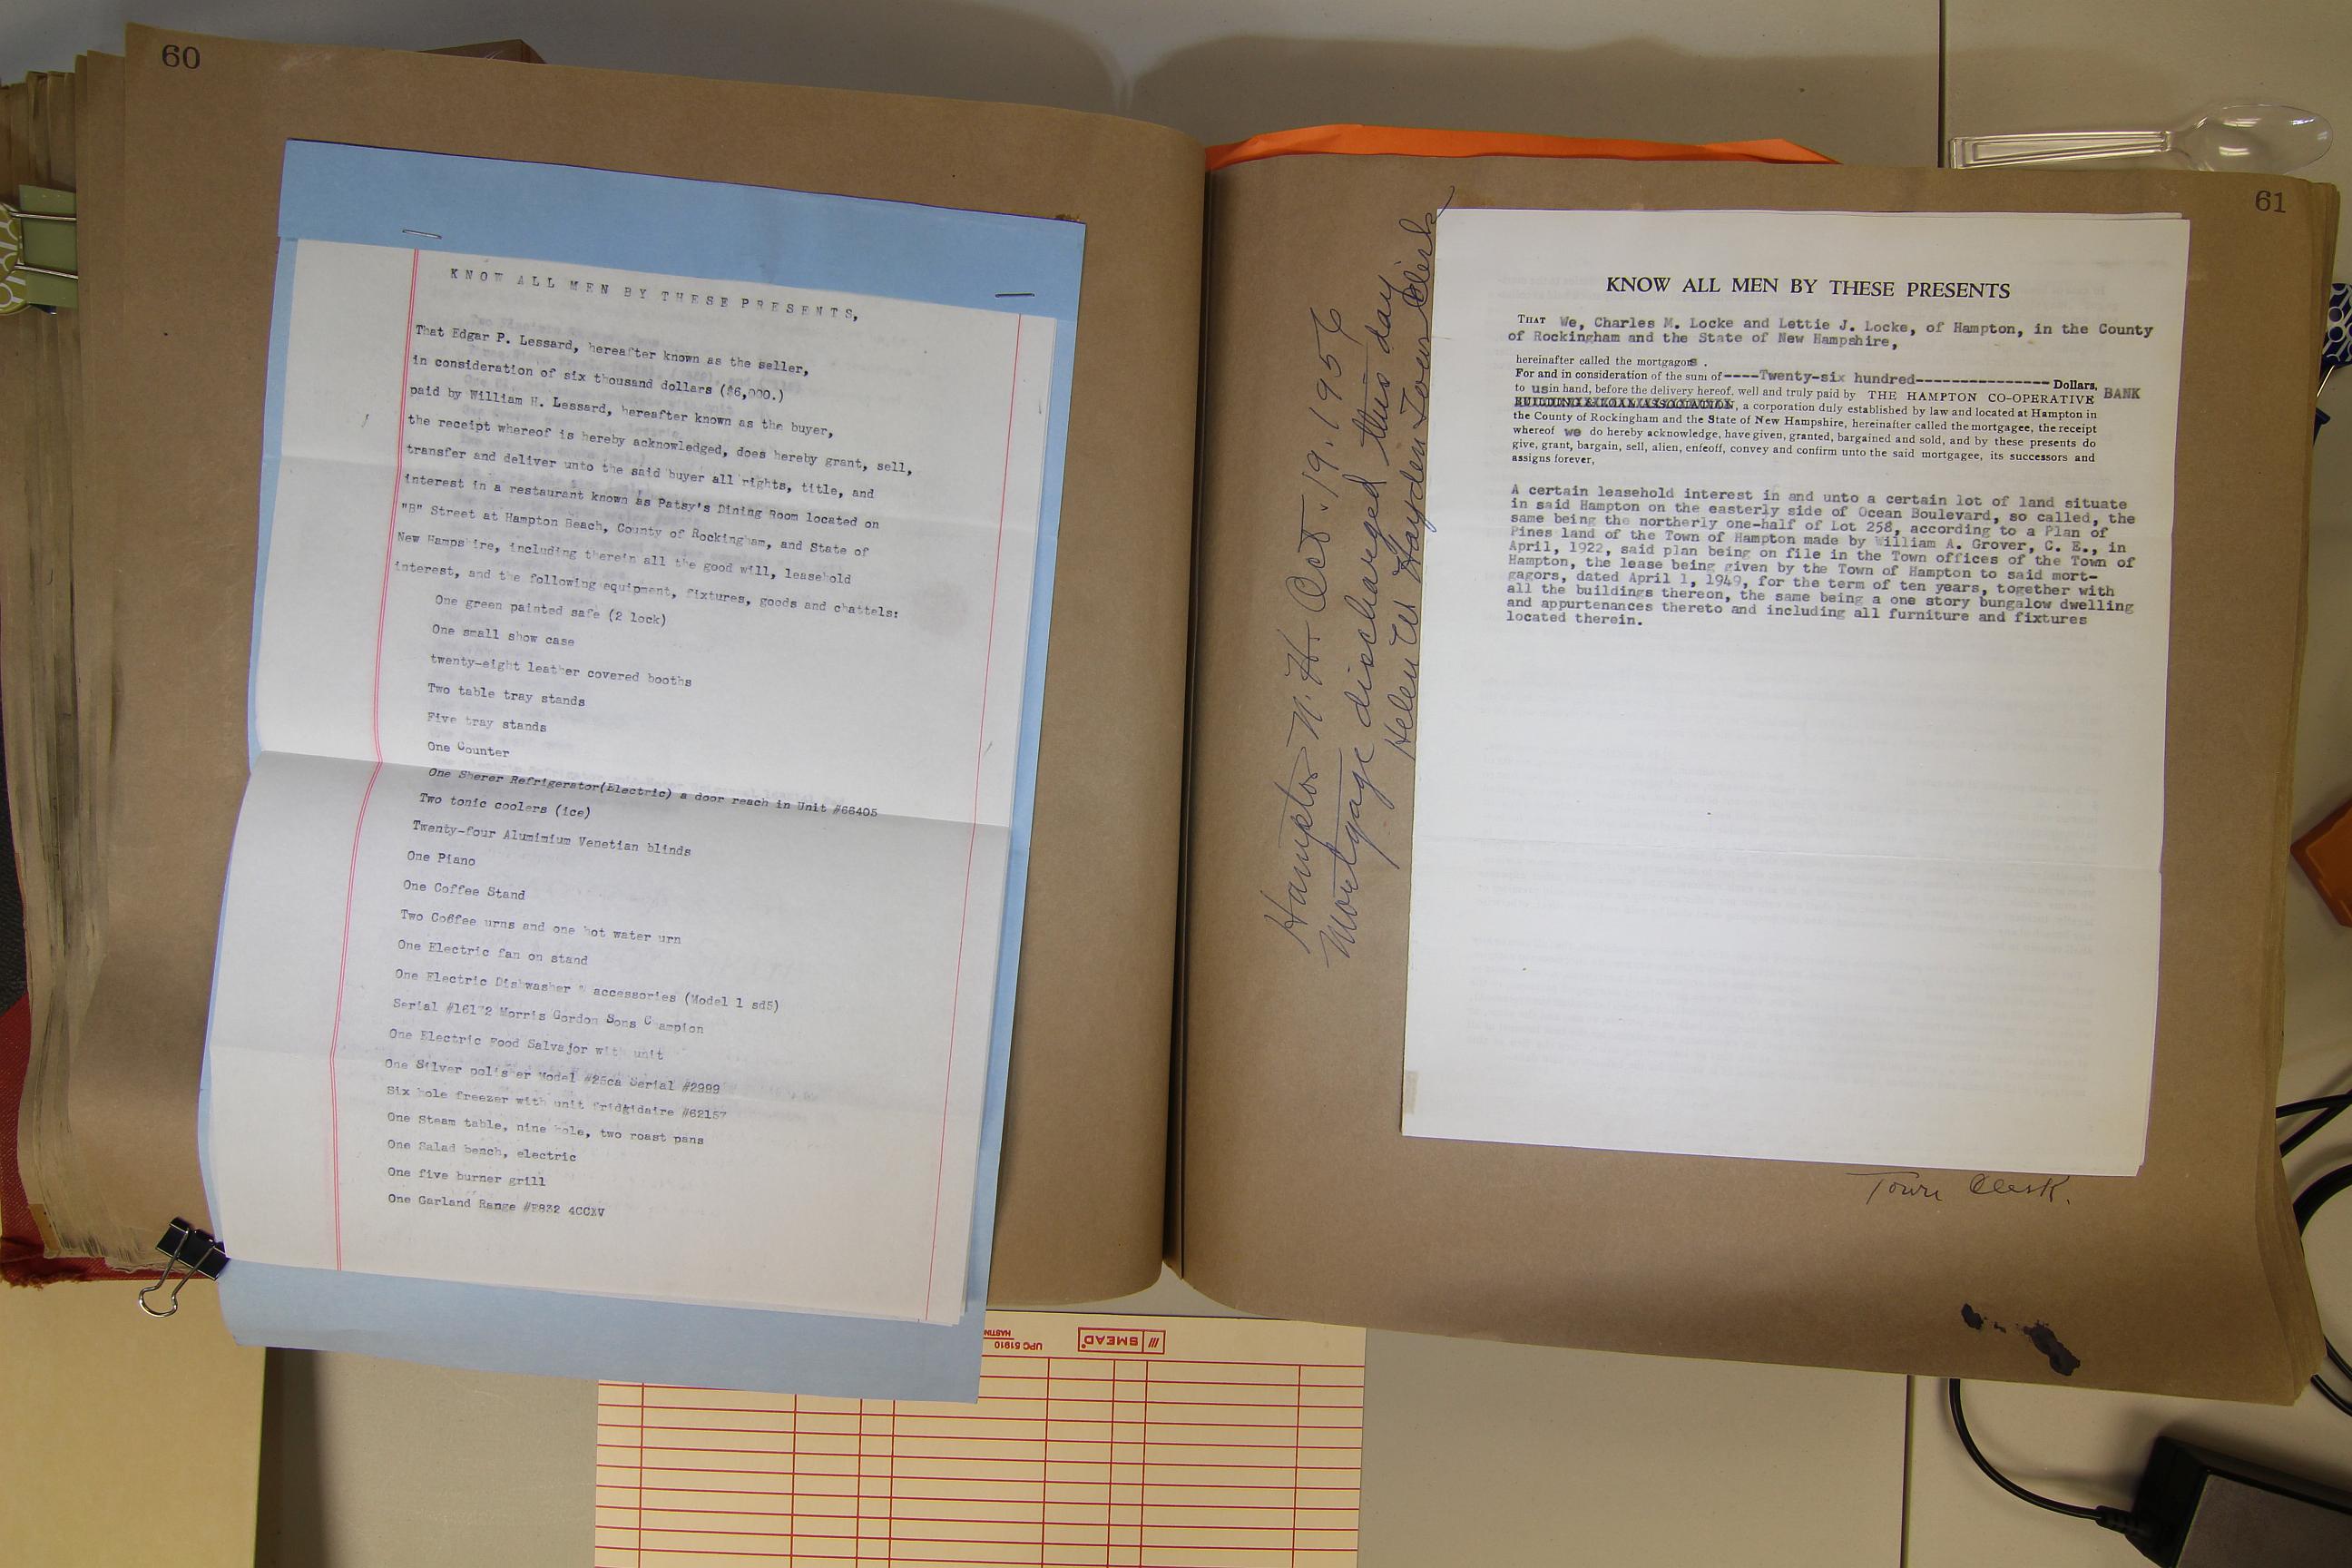 60
KNOW ALL MEN BY THESE PRESENTS,
That Edgar P. Lessard, hereafter known as the seller,
in consideration of six thousand dollars ($6,000.)
paid by William H. Lessard, hereafter known as the buyer,
the receipt whereof is hereby acknowledged, does hereby grant, sell,
transfer and deliver unto the said buyer all rights, title, and
interest in a restaurant known as Patsy's Dining Room located on
"B" Street at Hampton Beach, County of Rockingham, and State of
New Hampshire, including therein all the good will, leasehold
interest, and the following equipment, fixtures, goods and chattels:
One green painted safe (2 lock)
One small show case
twenty-eight leather covered booths
Two table tray stands
Five tray stands
One Counter
One Sherer Refrigerator(Electric) a door reach in Unit #66405
Two tonic coolers (ice)
Twenty-four Alumimium Venetian blinds
One Piano
One Coffee Stand
Two Coffee urns and one hot water urn
One Electric fan on stand
One Electric Dishwasher & accessories (Model 1 sd5)
Serial Morris Gordon Sons Champion
One Electric Food Salvajor with unit
One Silver polisher Model #25ca Serial #2999
Six hole freezer with unit fridgidaire #62157
One Steam table, nine hole, two roast pans
One Salad bench, electric
One five burner grill
One Garland Range #E832 4CCXV
61
Hampton N. H. Oct. 19, 1956
Mortgage discharged this day
Helen W. Hayden Town Clerk
KNOW ALL MEN BY THESE PRESENTS
THAT We, Charles M. Locke and Lettie J. Locke, of Hampton, in the County
of Rockingham and the State of New Hampshire,
hereinafter called the mortgagors .
For and in consideration of the sum of----Twenty-six hundred--------------- Dollars,
to us in hand, before the delivery hereof, well and truly paid by THE HAMPTON CO-OPERATIVE BANK
BUILDING & LOAN ASSOCIATION, a corporation duly established by law and located at Hampton in
the County of Rockingham and the State of New Hampshire, hereinafter called the mortgagee, the receipt
whereof we do hereby acknowledge, have given, granted, bargained and sold, and by these presents do
give, grant, bargain, sell, alien, enfeoff, convey and confirm unto the said mortgagee, its successors and
assigns forever,
A certain leasehold interest in and unto a certain lot of land situate
in said Hampton on the easterly side of Ocean Boulevard, so called, the
same being the northerly one-half of Lot 258, according to a Plan of
Pines land of the Town of Hampton made by William A. Grover, C. E., in
April, 1922, said plan being on file in the Town offices of the Town of
Hampton, the lease being given by the Town of Hampton to said mort-
gagors, dated April 1, 1949, for the term of ten years, together with
all the buildings thereon, the same being a one story bungalow dwelling
and appurtenances thereto and including all furniture and fixtures
located therein.
Town Clerk.
SMEAD
UPC 51910
HASTIN